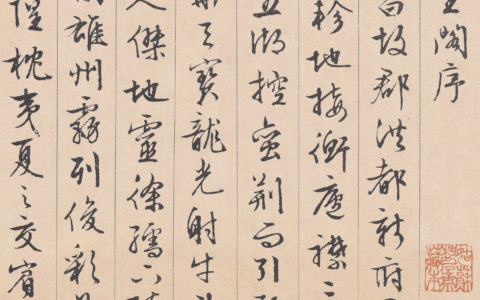 王閣序
昌故郡洪都新府
軫地接衡廬襟三
五湖控蠻荊而引
天寶龍光射牛
人傑地靈徐孺下
雄州霧列俊彩
隍枕夷夏之交賓